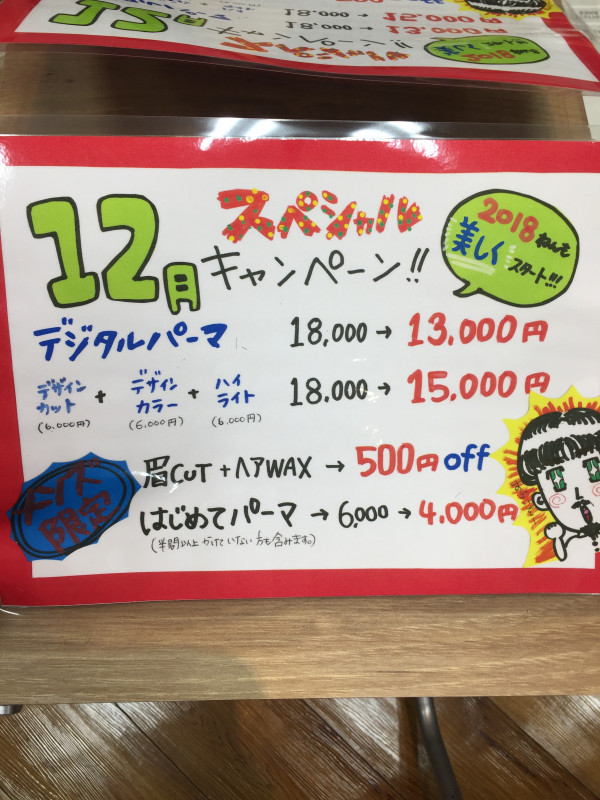 18,000 → 15,000円
18,000 → 13,000円
12月
スペシャル
キャンペーン!!
2018ねんも
美しく
スタート!!!
デジタルパーマ 18,000 → 13,000円
デザインカット + デザインカラー + ハイライト 18.000 → 15.000円
(6.000円) (6,000円) (6,000円)
メンズ
限定
眉CUT + ヘアWAX → 500円off
はじめてパーマ → 6,000 → 4.000円
(半年以上かけていない方も含みます。)